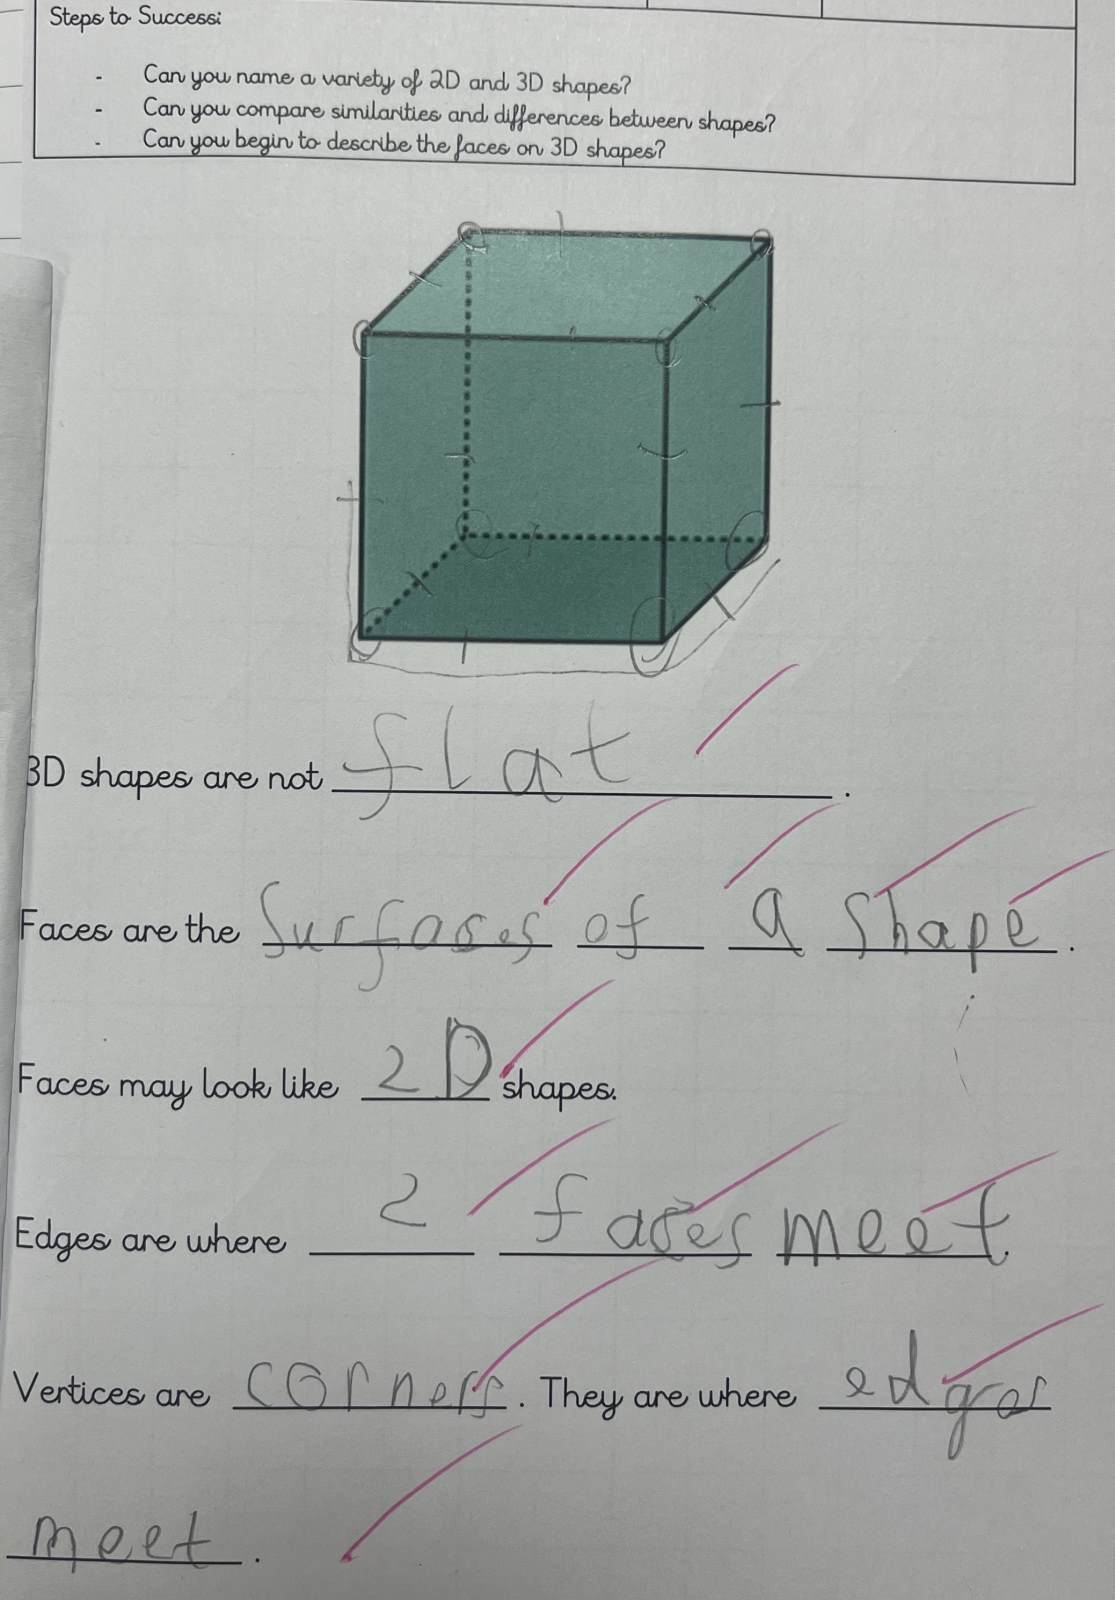 Steps to Success:
- Can you name a variety of 2D and 3D shapes?
- Can you compare similarities and differences between shapes?
- Can you begin to describe the faces on 3D shapes?
3D shapes are not flat.
Faces are the Surfases of a shape.
Faces may look like 2D shapes.
Edges are where 2 fases meet.
Vertices are corners. They are where edges
meet.